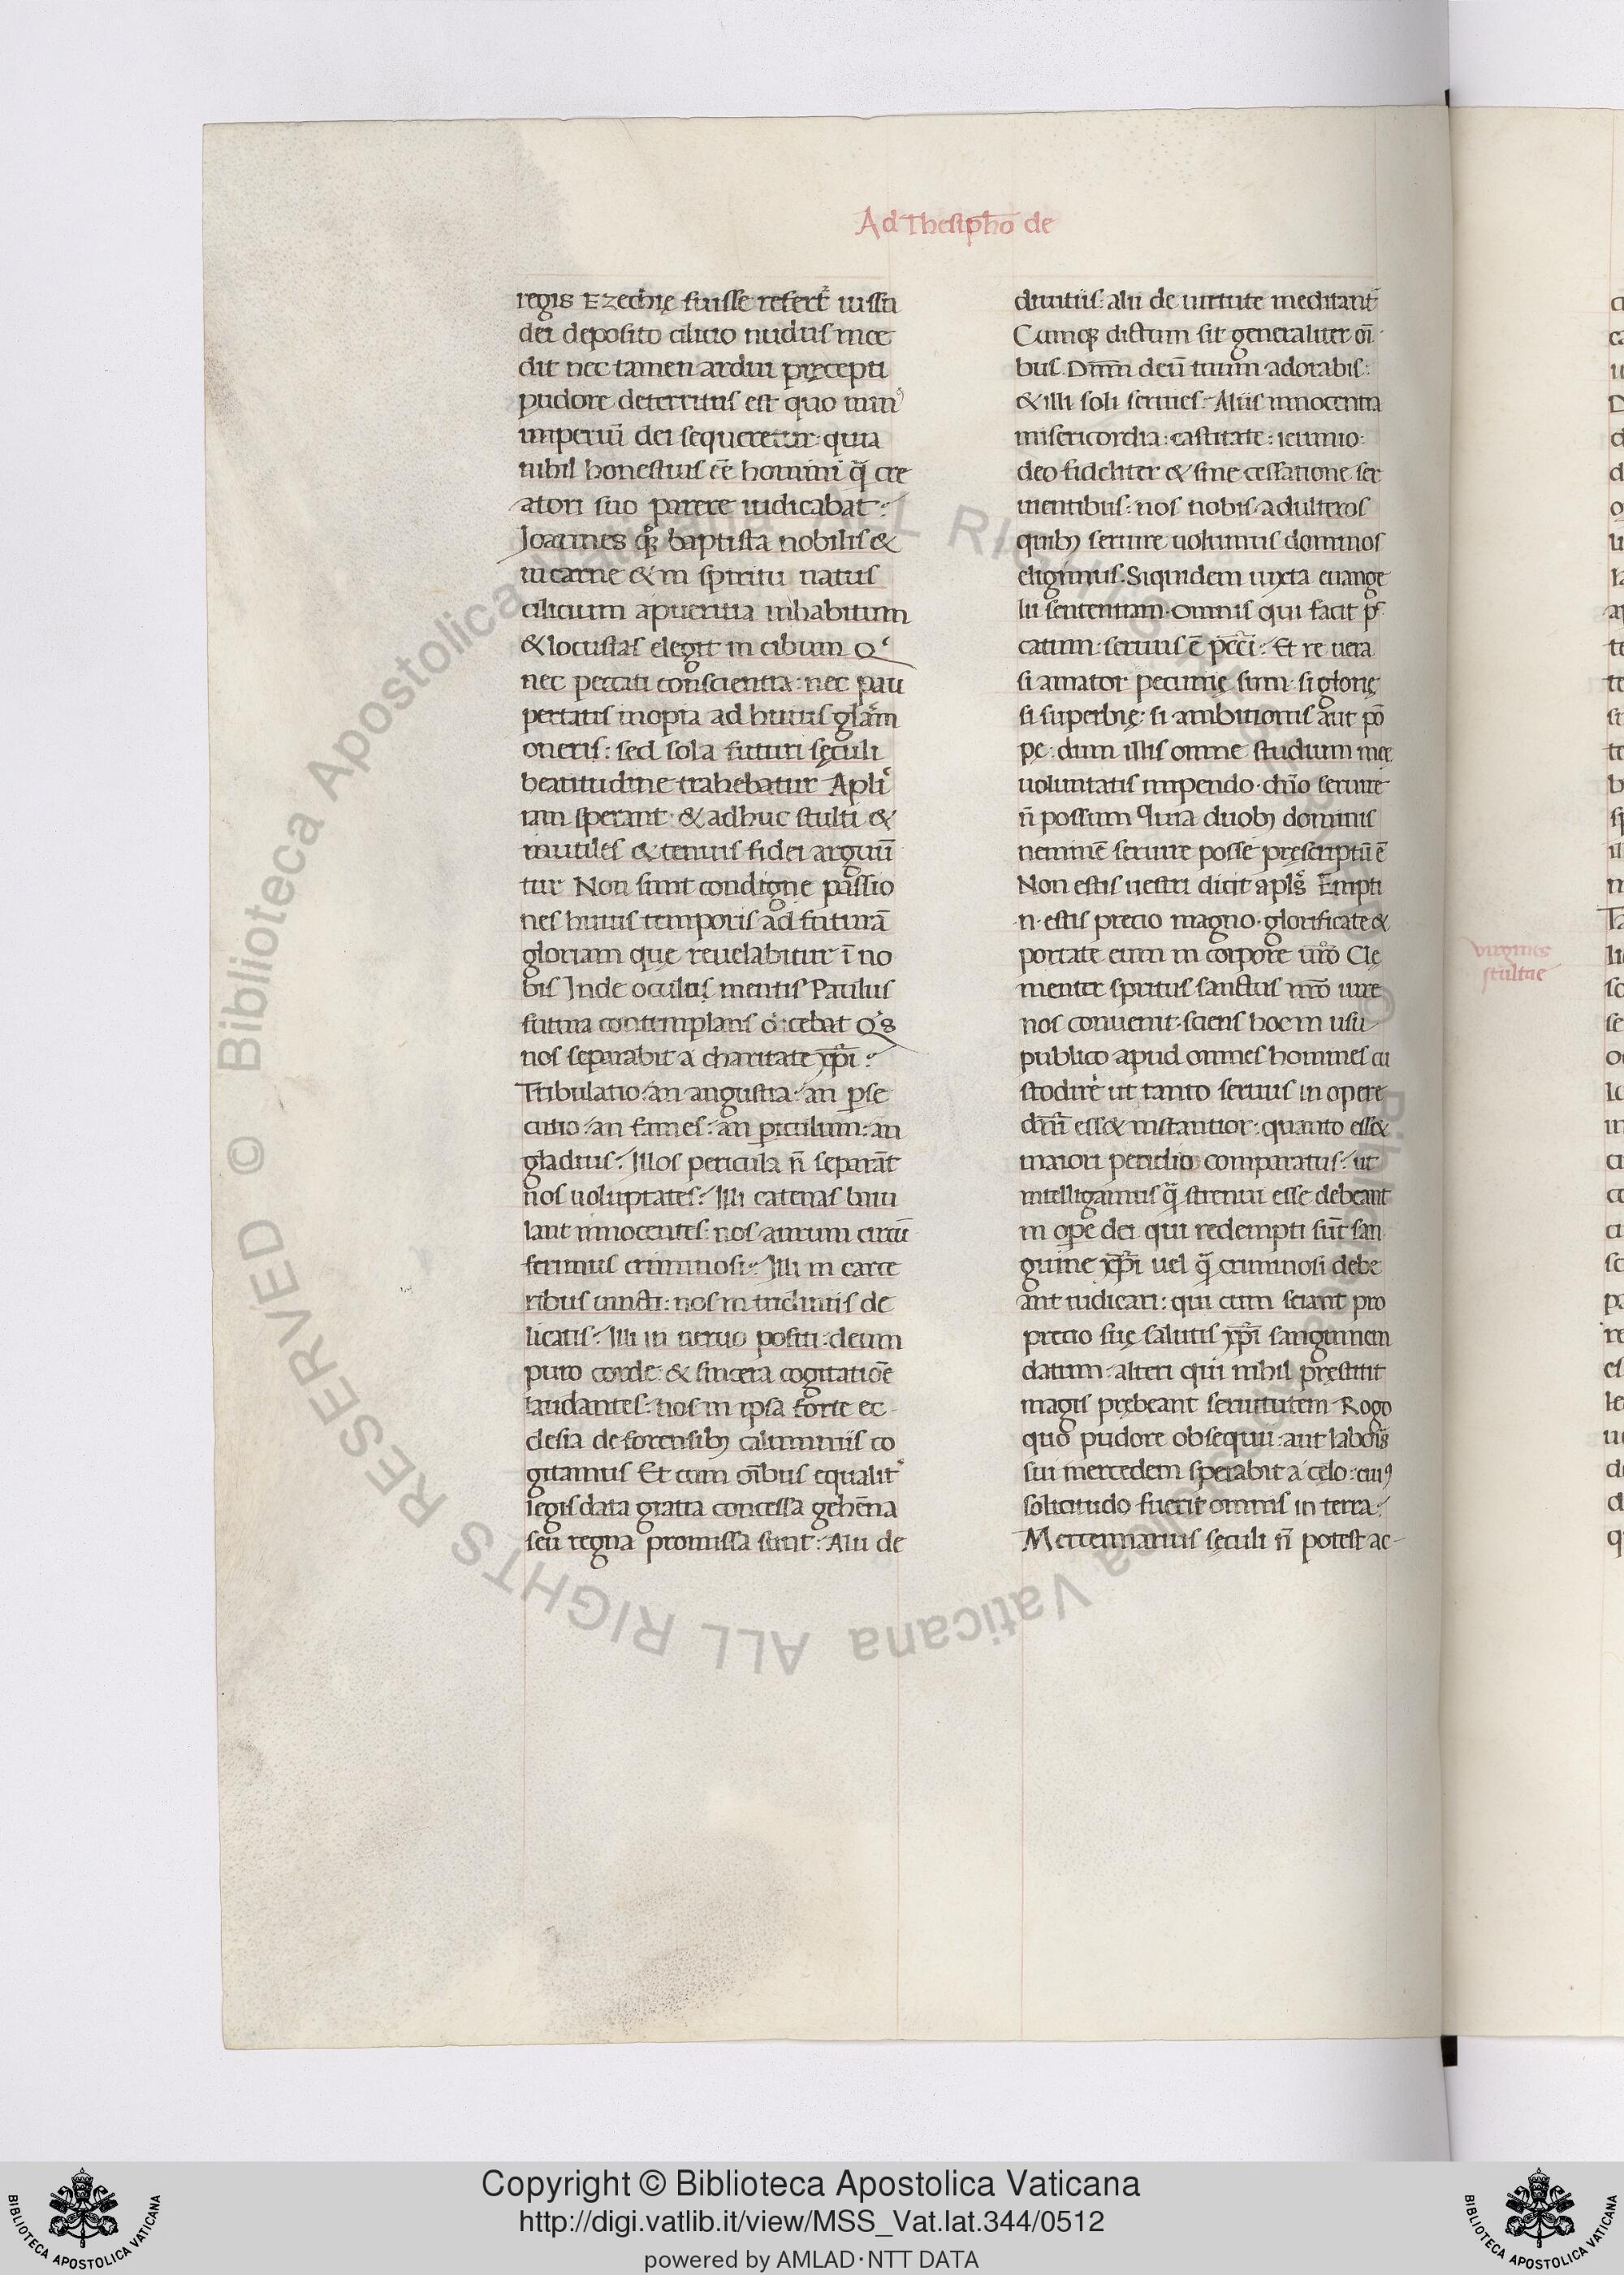 Ad Thesiph̄o de
regis Ezechię fuisse refert᷑ iussu
dei deposito cilicio nudus ince
dit nec tamen ardui pręcepti
pudore deterritus est quo minꝰ
imperiū dei sequeretur quia
nihil honestius eē homini q̄ cre
atori suo parere iudicabat:
Joannes qꝫ baptista nobilis &
in carne & in spiritu natus
cilicium a pueritia inhabitum
& locustas elegit in cibum Qͥ
nec peccati conscientia: nec pau
pertatis inopia ad huius glām
oneris: sed sola futuri sęculi
beatitudine trahebatur Apłi
iam sperant & adhuc stulti &
inutiles & tenuis fidei arguū
tur Non sunt condigne passio
nes huius temporis ad futurā
gloriam que reuelabitur ī no
bis Inde oculus mentis Paulus
futura contemplans dicebat Qͥs
nos separabit a charitate xp̄i:
Tribulatio: an angustia: an ꝑse
cutio: an fames: an ꝑiculum: an
gladius: Illos pericula n̄ separāt
nos uoluptates: Illi catenas baiu
lant innocentes: nos aurum circū
ferimus criminosi: Illi in carce
ribus uincti: nos in tricliniis de
licatis: Illi in neruo positi: deum
puro corde: & sincera cogitatiōe
laudantes: nos in ipsa forte ec
clesia de forensibꝫ calumniis co
gitamus Et cum oībus equalit᷑
legis data gratia concessa gehēna
seu regna promissa sunt: Alii de
diuitiis: alii de uirtute meditant᷑
Cumqꝫ dictum sit generaliter oī
bus. Dn̄m deū tuum adorabis:
& illi soli seruies: Aliis innocentia
misericordia: castitate: ieiunio:
deo fideliter & sine cessatione ser
uientibus: nos nobis adulteros
quibꝫ seruire uolumus dominos
eligimus. Siquidem iuxta euange
lii sententiam omnis qui facit pę
catum: seruus ē pc̄ci: Et re uera
si amator pecunię sum: si glorię
si superbię: si ambitionis aut pō
pę: dum illis omne studium meę
uoluntatis impendo dn̄o seruire
n̄ possum Quia duobꝫ dominis
neminē seruire posse pręscriptū ē
Non estis uestri dicit apłs Empti
n. estis precio magno glorificate &
portate eum in corpore ur̄o Cle
menter spiritus sanctus nr̄o iure
nos conuenit sciens hoc in usu
publico apud omnes homines cu
stodire ut tanto seruus in opere
dn̄i ess& instantior: quanto ess&
maiori peridio comparatus: ut
intelligamus q̄ strenui esse debeant
in oꝑe dei qui redempti sūt san
guine xp̄i uel q̄ criminosi debe
ant iudicari: qui cum sciant pro
precio suę salutis xp̄i sanguinem
datum alteri qui nihil pręstitit
magis prębeant seruitutem Rogo
quo pudore obsequii: aut laboris
sui mercedem sperabit a celo: cuiꝰ
solicitudo fuerit omnis in terra:
Mercennarius sęculi n̄ potest ac-
virgines
stultae
Copyright © Biblioteca Apostolica Vaticana
http://digi.vatlib.it/view/MSS_Vat.lat.344/0512
powered by AMLAD·NTT DATA
BIBLIOTECA APOSTOLICA VATICANA
BIBLIOTECA APOSTOLICA VATICANA
© Biblioteca Apostolica Vaticana ALL RIGHTS RESERVED © Biblioteca Apostolica Vaticana ALL RIGHTS RESERVED